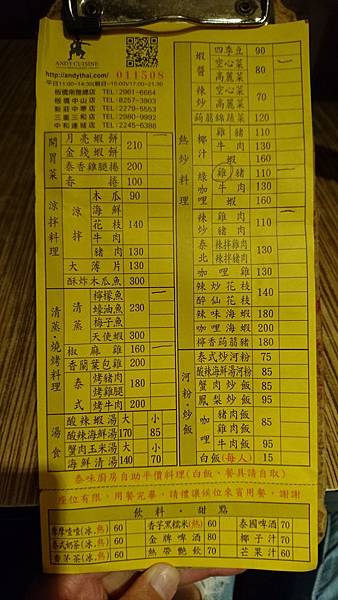 ANDYCUISINE
http://andythai.com/ 011508
平日11:00~14:30(假日~15:00)/17:00~21:30
板橋南雅總店 TEL:2961-6664
板橋中山店 TEL:8257-3803
新莊中華店 TEL:2279-5553
三重三和店 TEL:2980-9992
中和連城店 TEL:2245-6388
開胃菜
月亮蝦餅 210 一
金錢蝦餅
泰香雞腿捲 200
春捲 100
涼拌料理
涼拌
木瓜 90
海鮮 140
花枝
牛肉
豬肉 130
大薄片 130
酥炸木瓜魚 300
清蒸・燒烤料理
清蒸
檸檬魚 230 一
蠔油魚
梅子魚
天使蝦 300
椒麻雞 160 一
香蘭葉包雞 200
泰式
烤豬肉 180
烤雞腿
烤牛肉 200
湯食
酸辣蝦湯 大 小
酸辣海鮮湯 170 85
蟹肉玉米湯 大 小
海鮮清湯 140 70
熱炒料理
蝦醬
四季豆 90
空心菜 80 一
高麗菜
辣炒
空心菜 70
高麗菜
蒟蒻錦蔬菜 120
椰汁
雞豬 110
牛肉 130
蝦 160
綠咖哩
雞豬 110 一
牛肉 130
蝦 160
辣炒
雞肉 110 一
豬肉
牛肉 130
泰北
辣拌雞肉 130
辣拌豬肉
咖哩雞 130
辣炒花枝 140
醉仙花枝
辣味海蝦 180
咖哩海蝦 200
檸香蒟蒻豬 180
河粉・炒飯
泰式炒河粉 75
酸辣海鮮湯河粉 85
蟹肉炒飯 85
鳳梨炒飯 95
咖哩
豬肉飯 85
雞肉飯
牛肉飯 95
白飯(每人) 15
泰味廚房自助平價料理(白飯、餐具請自取)
座位有限，用餐完畢，請禮讓候位來賓用餐，謝謝
飲料・甜點
摩摩喳喳(冰,熱) 60
香芋黑糯米(熱) 60
泰國啤酒 70
泰式奶茶(冰,熱) 60
金牌啤酒 80
椰子汁 70
香茅茶(冰,熱) 60
熱帶飽飲 70
芒果汁 60